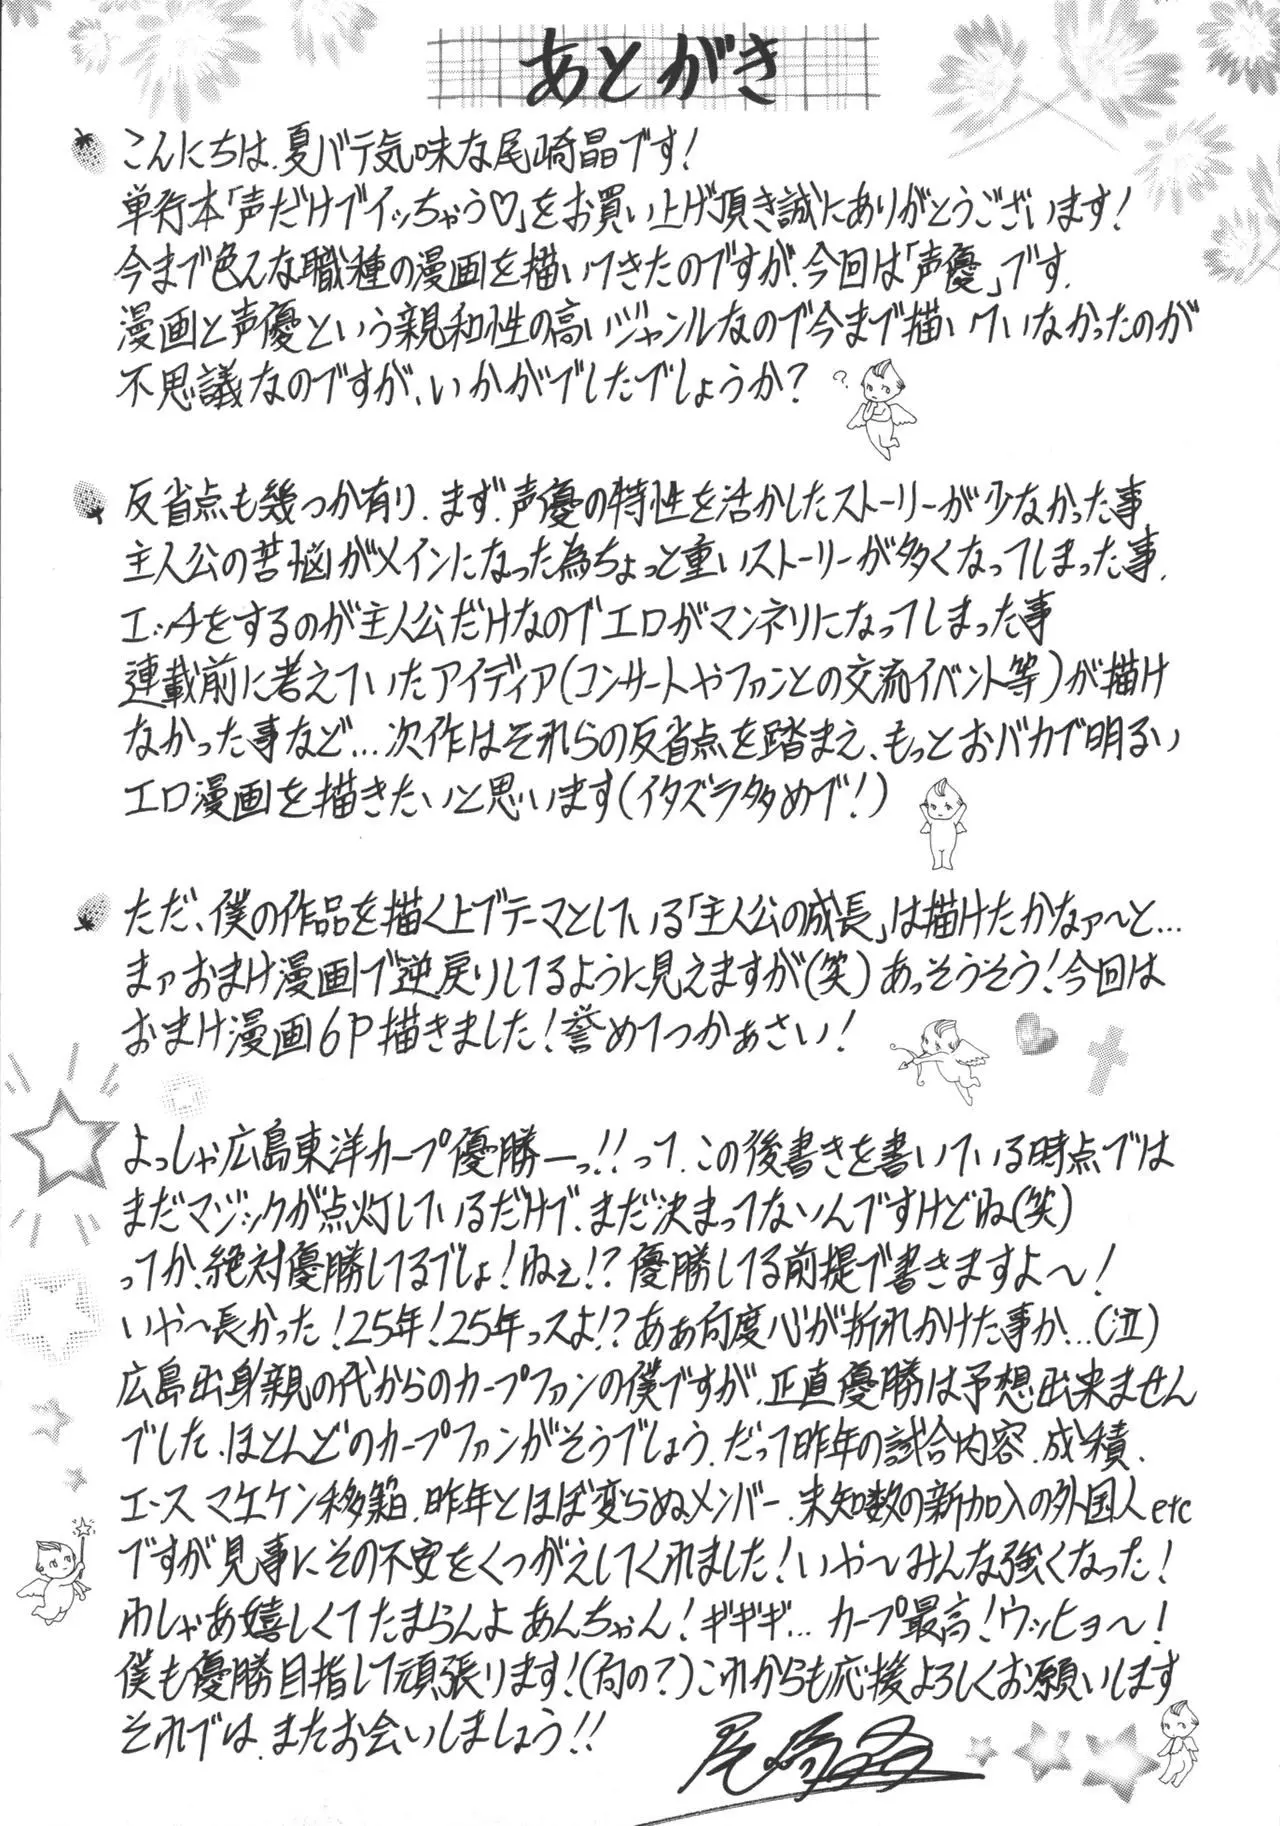 あとがき
こんにちは、夏バテ気味な尾崎晶です!
単行本「声だけでイッちゃう♡」をお買い上げ頂き誠にありがとうございます!
今まで色んな職種の漫画を描いてきたのですが、今回は「声優」です.
漫画と声優という親和性の高いジャンルなので今まで描いていなかったのが
不思議なのですが、いかがでしたでしょうか?
?
反省点も幾つか有り、まず、声優の特性を活かしたストーリーが少なかった事
主人公の苦悩がメインになった為ちょっと重いストーリーが多くなってしまった事.
エッチをするのが主人公だけなのでエロがマンネリになってしまった事
連載前に考えていたアイディア(コンサートやファンとの交流イベント等)が描け
なかった事など…次作はそれらの反省点を踏まえ、もっとおバカで明るい
エロ漫画を描きたいと思います(イタズラ多めで!)
ただ、僕の作品を描く上でテーマとしている「主人公の成長」は描けたかなァ〜と…
まァおまけ漫画で逆戻りしてるように見えますが(笑)あっそうそう!今回は
おまけ漫画6P描きました!誉めてつかぁさい!
よっしゃ広島東洋カープ優勝ーっ!!って、この後書きを書いている時点では
まだマジックが点灯しているだけで、まだ決まってないんですけどね(笑)
ってか、絶対優勝してるでしょ!ねぇ!?優勝してる前提で書きますよ〜!
いや〜長かった!25年!25年っスよ!?あぁ何度心が折れかけた事か…(泣)
広島出身親の代からのカープファンの僕ですが、正直優勝は予想出来ません
でした、ほとんどのカープファンがそうでしょう、だって昨年の試合内容、成積、
エース マエケン移籍、昨年とほぼ変らぬメンバー、未知数の新加入の外国人etc
ですが見事にその不安をくつがえしてくれました!いや〜みんな強くなった!
わしゃあ嬉しくてたまらんよあんちゃん!ギギギ…カープ最高!ウッヒョ〜!
僕も優勝目指して頑張ります!(何の?)これからも応援よろしくお願いします
それでは、またお会いしましょう!!
尾崎晶